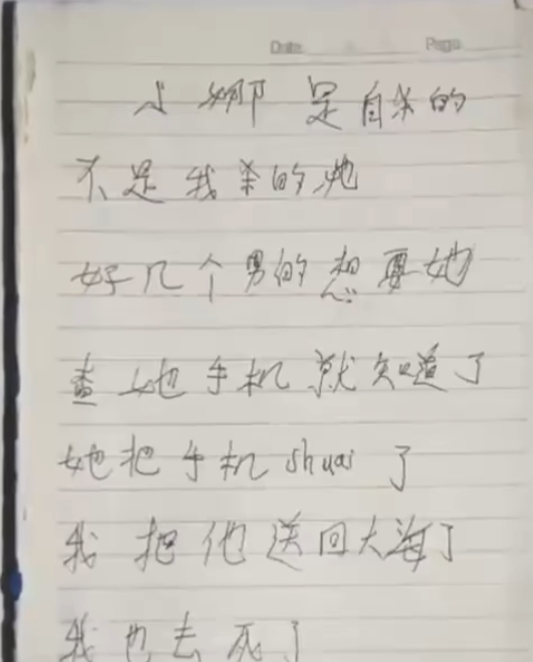 Date Page
小娜是自杀的
不是我杀的她
好几个男的想要她
查她手机就知道了
她把手机shuai了
我把他送回大海了
我也去死了